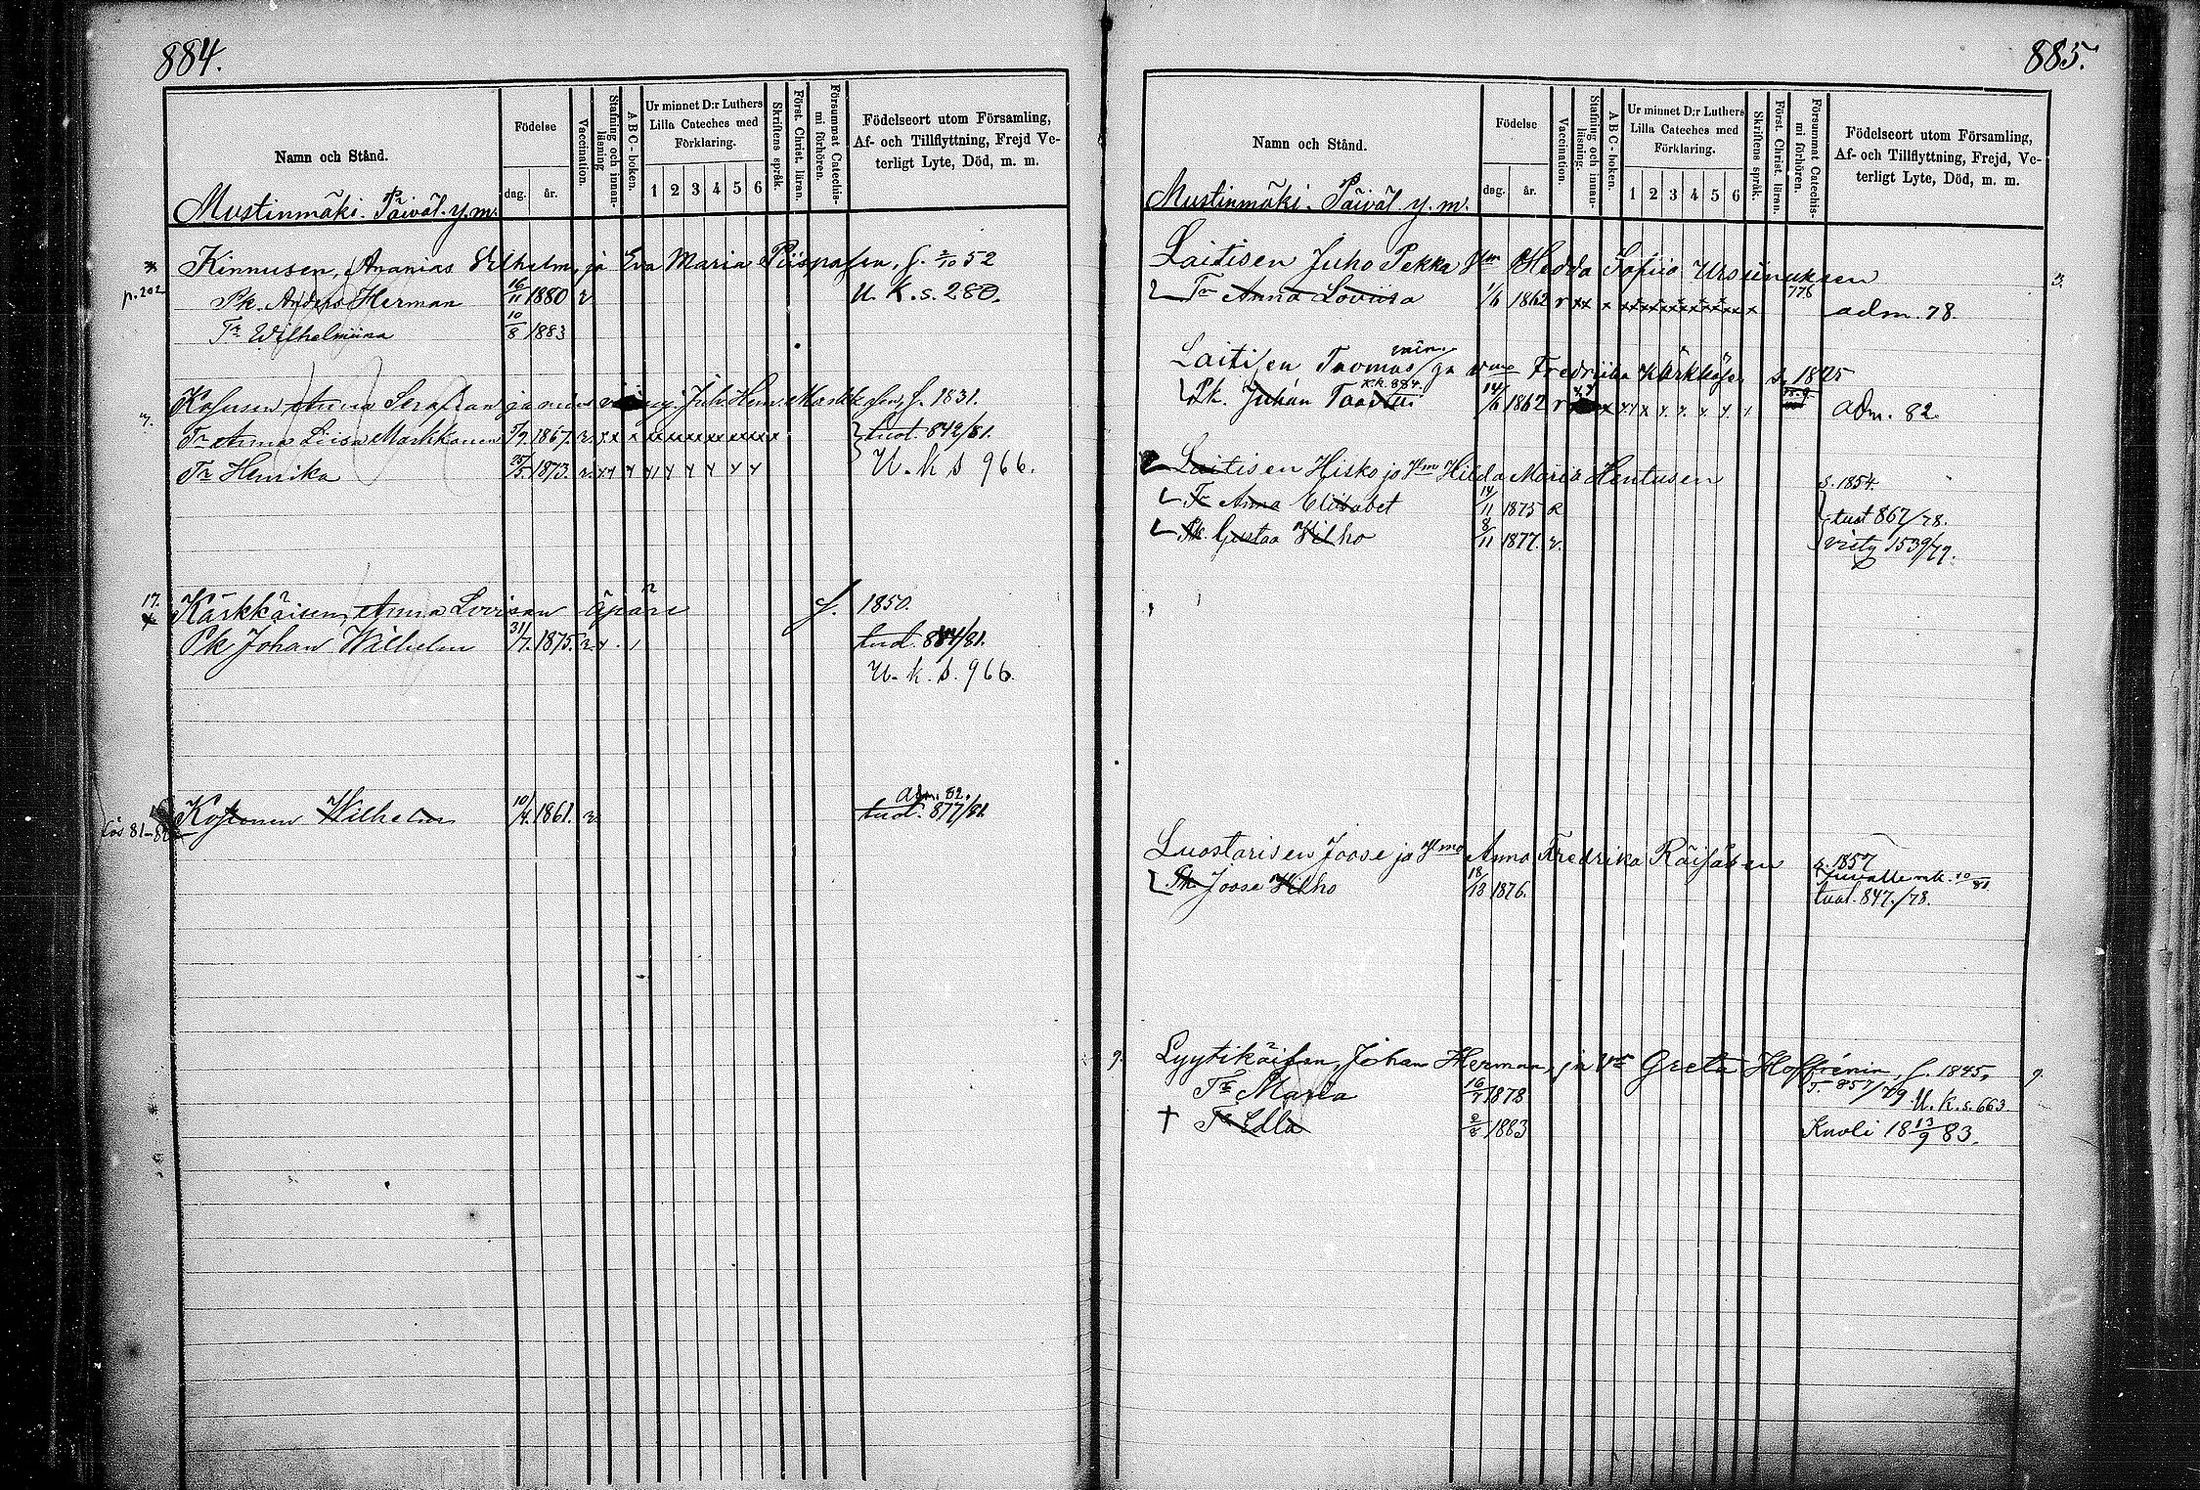 884.
Namn och Stånd.
Födelse
dag. år.
Vaccination.
Stafning och innan-läsning
ABC-boken.
Ur minnet D:r Luthers
Lilla Cateches med
Förklaring.
1 2 3 4 5 6
Skriftens språk.
Först. Christ. läran.
Försummat Catechis-mi förhören.
Födelseort utom Församling,
Af- och Tillflyttning, Frejd Ve-
terligt Lyte, Död, m. m.
Mustinmäki. Päiväl. y. m.
Kinnusen, Ananias Vilhelm, ja Eva Maria Piispasen, f. 2/10 52
p. 202 Pk. Anders Herman 16/11 1880 v U. K. s. 280.
Tr Wilhelmiina 10/8 1883
Anna Serafian ja f. 1831.
Tr Anna Liisa Markkanen 5/9 1867. v. x x x x x x x x x x x tuot. 842/81.
Tr Henrika 25/5 1873. v. U. k s 966.
17. Kärkkäisen, Anna Lovisan äpäre f. 1850.
Pk Johan Wilhelm 31/7. 1875. v. tuot. 884/81.
U. k. s. 966.
Adm. 82.
Wilhelm 10/4. 1861. v. tuot. 877/81.
885.
Namn och Stånd.
Födelse
dag. år.
Vaccination.
Stafning och innan-läsning.
ABC-boken.
Ur minnet D:r Luthers
Lilla Cateches med
Förklaring.
1 2 3 4 5 6
Skriftens språk.
Först. Christ. läran.
Försummat Catechis-mi förhören.
Födelseort utom Församling,
Af- och Tillflyttning, Frejd, Ve-
terligt Lyte, Död, m. m.
Mustinmäki. Päiväl. y. m.
Laitisen Juho Pekka Hedda Sofiia Ursinuksen
Tr Anna Loviisa 1/6 1862 r x x x x x x x x x x x adm. 78. 3.
Laitisen Taomas vain. ja Fredriika Kärkkäsen s. 1825
Pk. Juhan Taavetti 14/6 1862 r Adm. 82.
Laitisen Hisko ja Hilda Maria Hentusen s. 1854.
Tr Anna Elisabet 14/11 1875 r tuot 867/78.
Pk. Gustaa Vilho 8/11 1877. v. 1539/79.
Luostarisen Joose ja Anna Fredrika Räisäsen s. 1857
Pk Joose Vilho 18/10 1876. tuot. 847./78.
9. Lyytikäisen, Johan Herman, ja Greta Hoffrenin, f. 1845, 9.
Tr Maria 16/7 1878 T. 857/79 U. k. s. 663.
† Tr Edla 2/8 1883 Kuoli 18 13/9 83.